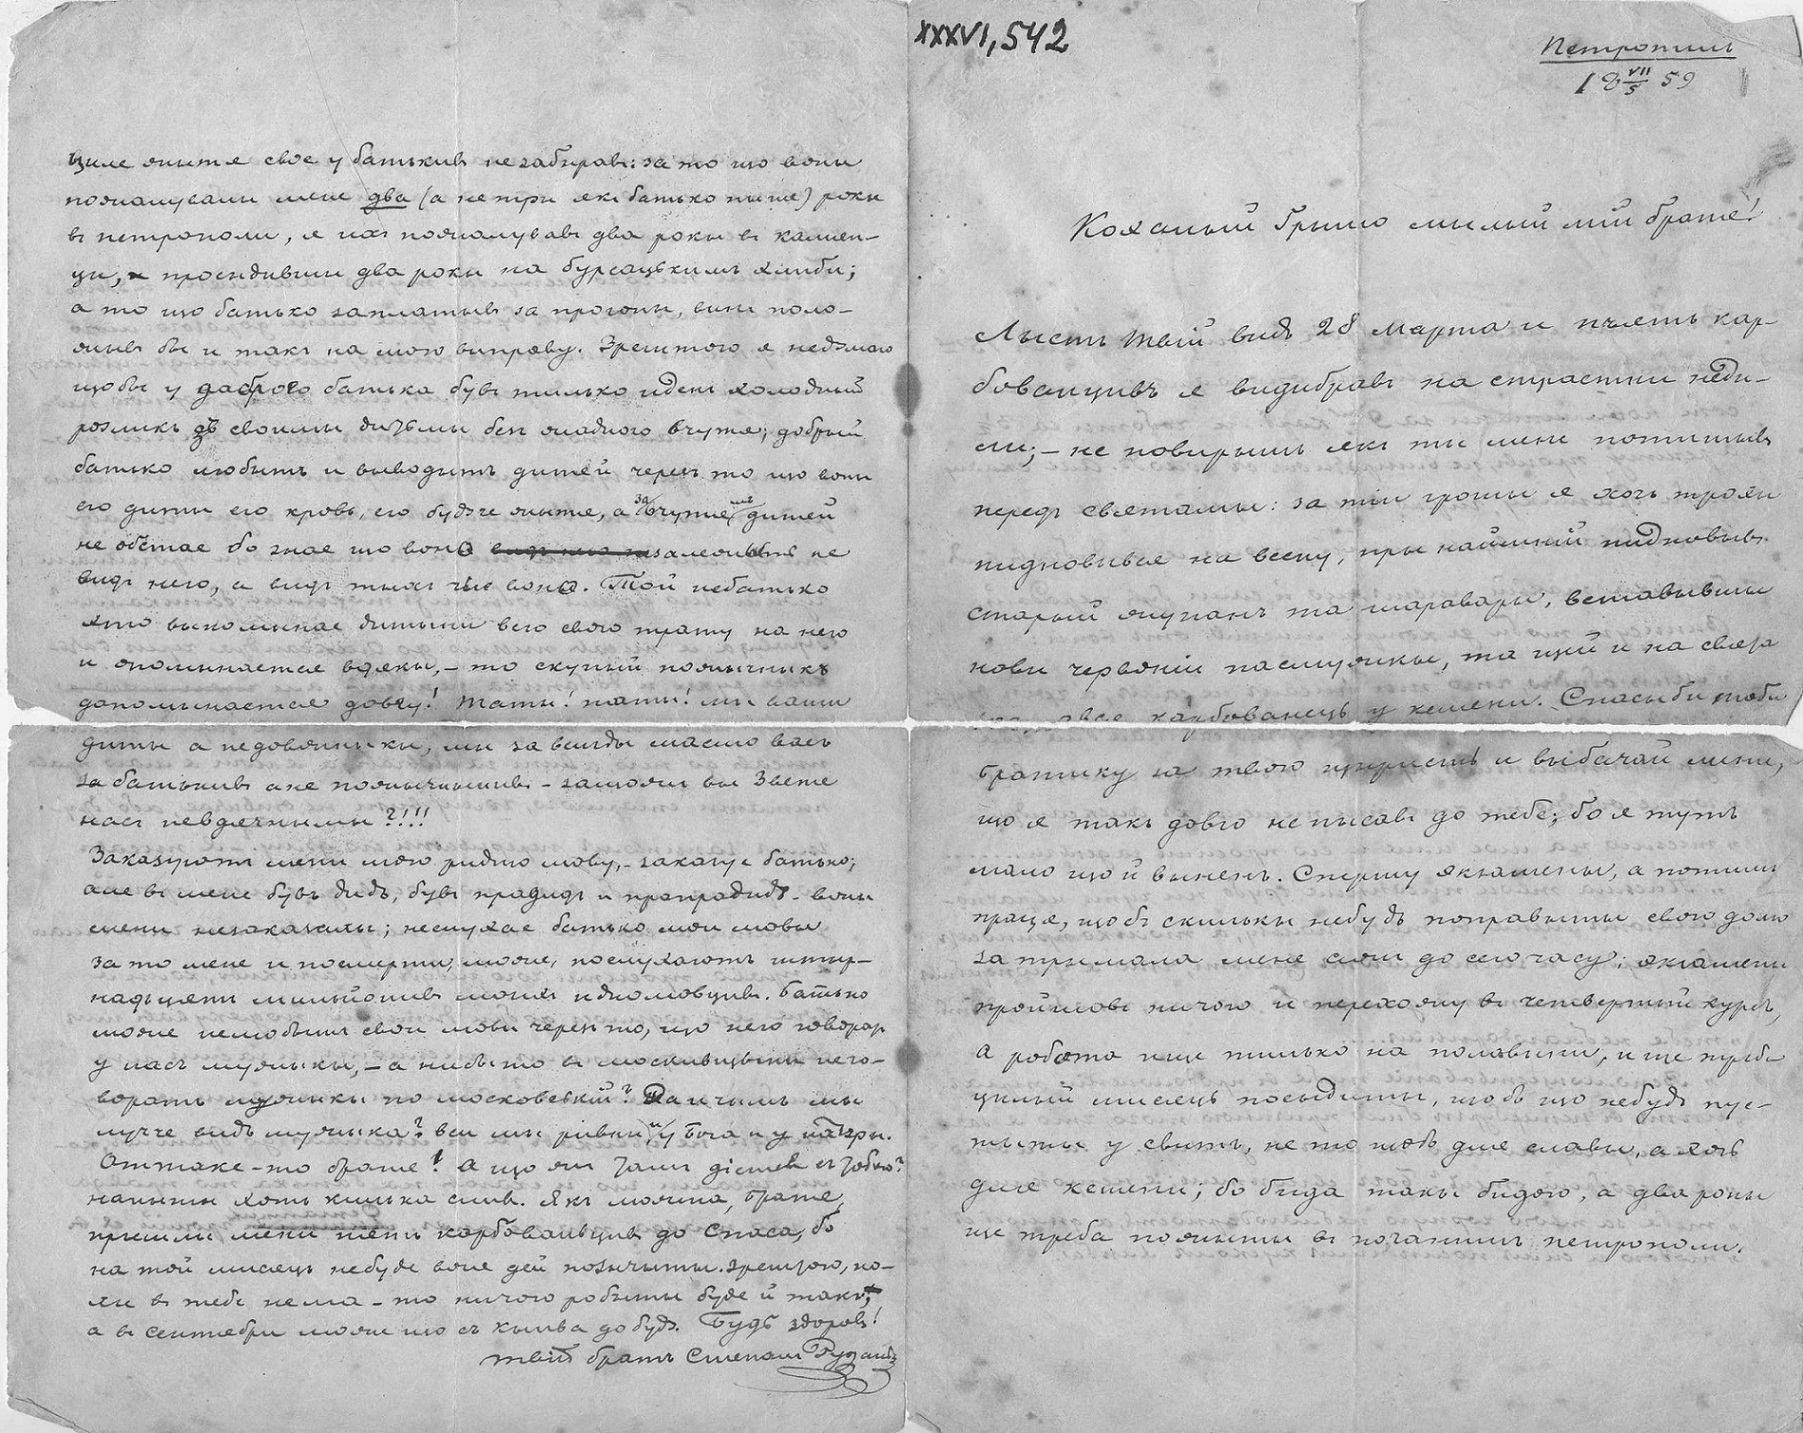 XXXVI, 542
Петрополь
18 VII/5 59
Коханый Грыцю милый мій брате!
Лыстъ твій видъ 28 марта и пъять кар-
бованцивъ я видибравъ на страстни неди-
ли; – не повирышъ якъ ты мене потишывъ
передъ святамы: за тии гроши я хочъ трохи
пидновывся на весну, прынаймній пидновывъ
старый жупанъ та шаравары, вставывшы
нови червоніи пасмужкы, та щей и на свята
двая карбованець у кешени. Спасыби тоби
братику за твою щиристь и выбачай мени,
що я такъ довго не пысавъ до тебе; бо я тутъ
мало що й вынен. Сперши якзамены, а потимъ
праця, щобъ скилькы небудь поправыты свою долю
затримала мене ажъ до сего часу; якзамены
пройшовъ ничого и перехожу въ четвертый курсъ,
а робота ище тилько на половыни, и ще треба
цилый мисяць посыдиты, щобъ що небудь пус-
тыты у свитъ, не то щобъ для славы, а хочъ
для кешени; бо бида такы бидою, а два рокы
ще треба пожыты въ поганимъ петрополи.
циле жытя свое у батькивъ не забиравъ: за то що воны
пожалувалы мене два (а не три якъ батько пыше) рокы
въ петрополи, я ихъ пожалувавъ два рокы въ камен-
ци, просидивши два рокы на бурсацькимъ хлиби;
а то що батько заплатывъ за прогоны, винъ поло-
жывъ бы и такъ на мою выправу. Зрештою я недумаю
щобы у доброго батька бувъ тилько иденъ холодный
розликъ зъ своимы дитьмы безъ жадного вчутя; добрый
батько любыть и выводыть дитей черезъ то що воны
его диты его кровъ, его будуче жытя, а за вчутя дитей
не обстае бо знае що воно залежыть не
видъ него, а видъ тыхъ чіе воно. Той небатько
хто выпомынае дытыни всю свою трату на него
и впомынается вдякы, – то скупый позычныкъ
допомынается довгу! Тату! тату! мы ваши
диты а недовжныкы, мы завсигды маемо васъ
за батькивъ а не позычныкивъ – защожъ вы звете
насъ невдячнымы?!!!
Заказують мени мою ридню мову, – заказуе батько;
але въ мене бувъ дидъ, бувъ прадидъ и прапрадидъ – воны
мени незаказалы; неслухае батько мои мовы
зато мене и посмерти, може, послухають штыр-
надцять мильйонивъ моихъ идномовцивъ. Батько
може нелюбытъ свои мовы черезъ то, що нею говорять
у насъ мужыкы, – а нибыто въ московщыни него-
ворять мужыкы по московській? Да и чимъ мы
лучче видъ мужыка? вси мы ривни и у Бога и у натури.
Оттаке-то брате! А що жъ тамъ діется съ тобою?
напыши хоть килька слив. Якъ можна, брате,
прышли мени пять карбованцивъ до Спаса, бо
на той мисяць небуде воно дей позычыты. Зрештою, ко-
ли въ тебе нема – то ничого робыты буде й такъ,
а въ сентябри може що съ кыива добуду. Будь здоровъ!
твій братъ Степанъ Руданській